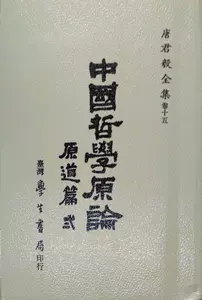 唐君毅全集 卷十五
中國哲學原論
原道篇 貳
臺灣學生書局印行